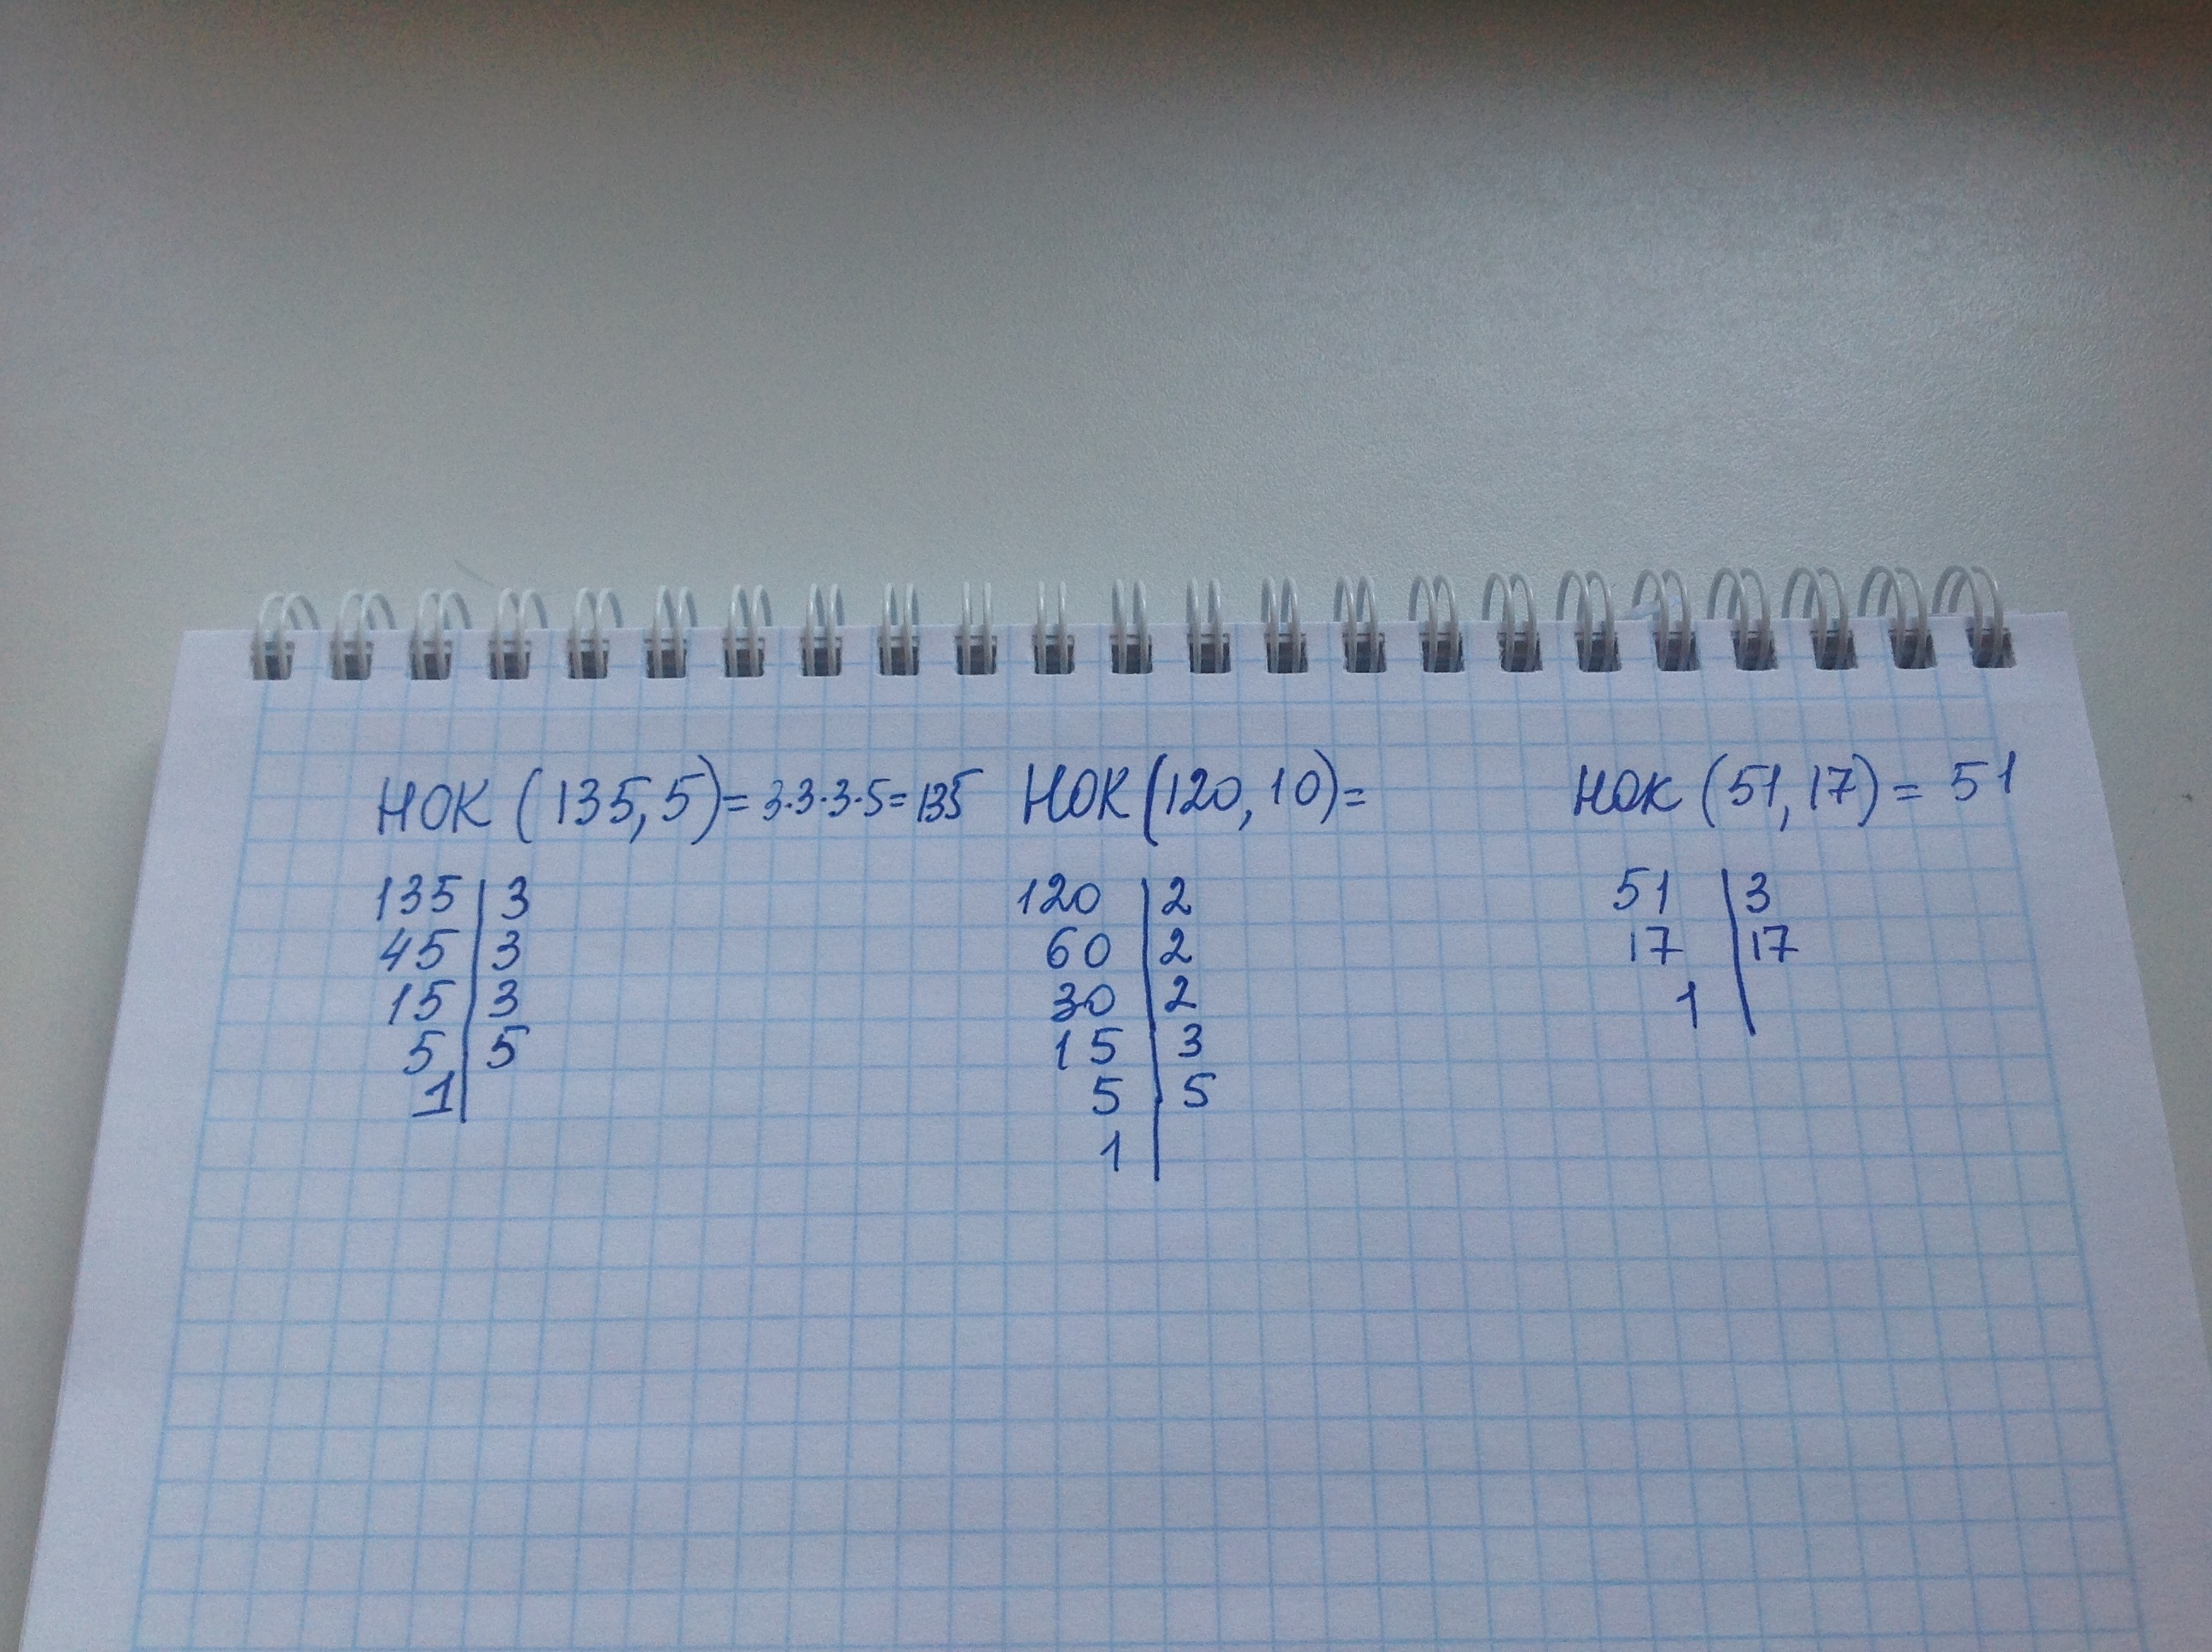 НОК (135,5)= 3·3·3·5= 135
135 | 3
45 | 3
15 | 3
5 | 5
1 |
НОК (120, 10)=
120 | 2
60 | 2
30 | 2
15 | 3
5 | 5
1 |
НОК (51, 17) = 51
51 | 3
17 | 17
1 |